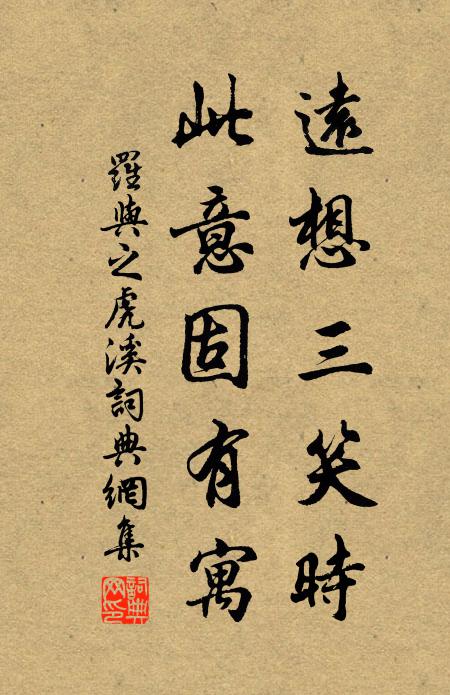 遠想三笑時
此意固有寓
羅與之虎溪詞典網集
詞典網印